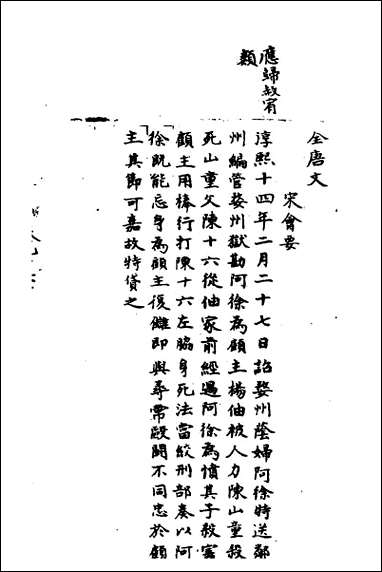 應婦赦宥
類
全唐文
宋會要
淳熙十四年二月二十七日詔婺州蔭婦阿徐特送鄰
州編管婺州獄勘阿徐為顧主楊伷被人力陳山童殺
死山童父陳十六從伷家前經過阿徐為憤其子殺害
顧主用棒行打陳十六左脇身死法當絞刑部奏以阿
徐既能忘身為顧主復讎即與尋常毆鬭不同忠於顧
主其節可嘉故特貸之